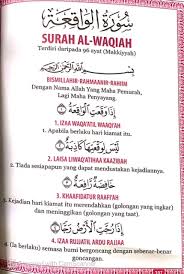 سُورَةُ الْوَاقِعَةِ
SURAH AL-WAQIAH
Terdiri daripada 96 ayat (Makkiyyah)
بِسْمِ اللَّهِ الرَّحْمَٰنِ الرَّحِيمِ
BISMILLAHIR-RAHMAANIR-RAHIM
Dengan Nama Allah Yang Maha Pemurah,
Lagi Maha Penyayang.
إِذَا وَقَعَتِ الْوَاقِعَةُ
1. IZAA WAQA'ATIL WAAQI'AH
1. Apabila berlaku hari kiamat itu.
لَيْسَ لِوَقْعَتِهَا كَاذِبَةٌ
2. LAISA LIWAQ'ATIHAA KAAZIBAH
2. Tiada sesiapapun yang dapat mendustakan kejadiannya.
خَافِضَةٌ رَافِعَةٌ
3. KHAAFIDATUR RAAFI'AH
Kejadian hari kiamat itu merendahkan (golongan yang ingkar)
dan meninggikan (golongan yang taat).
إِذَا رُجَّتِ الْأَرْضُ رَجًّا
4. IZAA RUJJATIL ARDU RAJJAA
(Ia berlaku) semasa bumi bergoncang dengan sebenar-benar
goncangan.